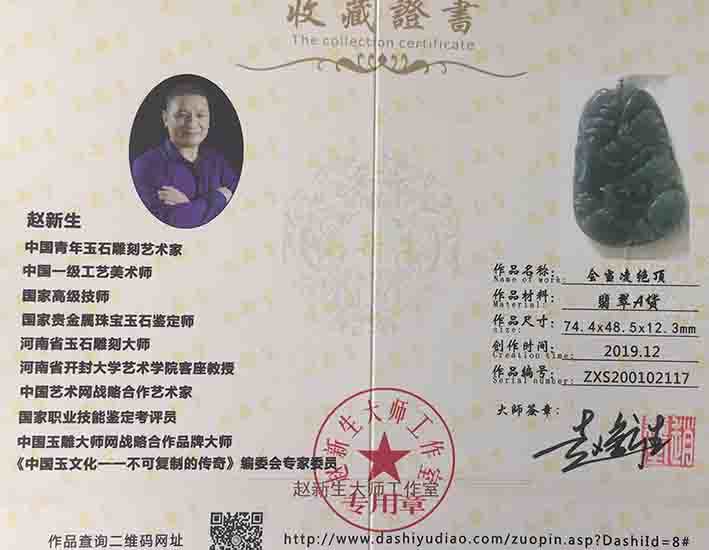 收藏證書
The collection certificate
赵新生
中国青年玉石雕刻艺术家
中国一级工艺美术师
国家高级技师
国家贵金属珠宝玉石鉴定师
河南省玉石雕刻大师
河南省开封大学艺术学院客座教授
中国艺术网战略合作艺术家
国家职业技能鉴定考评员
中国玉雕大师网战略合作品牌大师
《中国玉文化一一不可复制的传奇》编委会专家委员
作品名称: 会当凌绝顶
Name of work:
作品材料: 翡翠A货
Material:
作品尺寸: 74.4x48.5x12.3mm
size:
创作时间: 2019.12
Creation time:
作品编号: ZXS200102117
Serial number:
大师签章:
赵新生
赵新生大师工作室
专用章
赵新生大师工作室
作品查询二维码网址
http://www.dashiyudiao.com/zuopin.asp?DashiId=8#